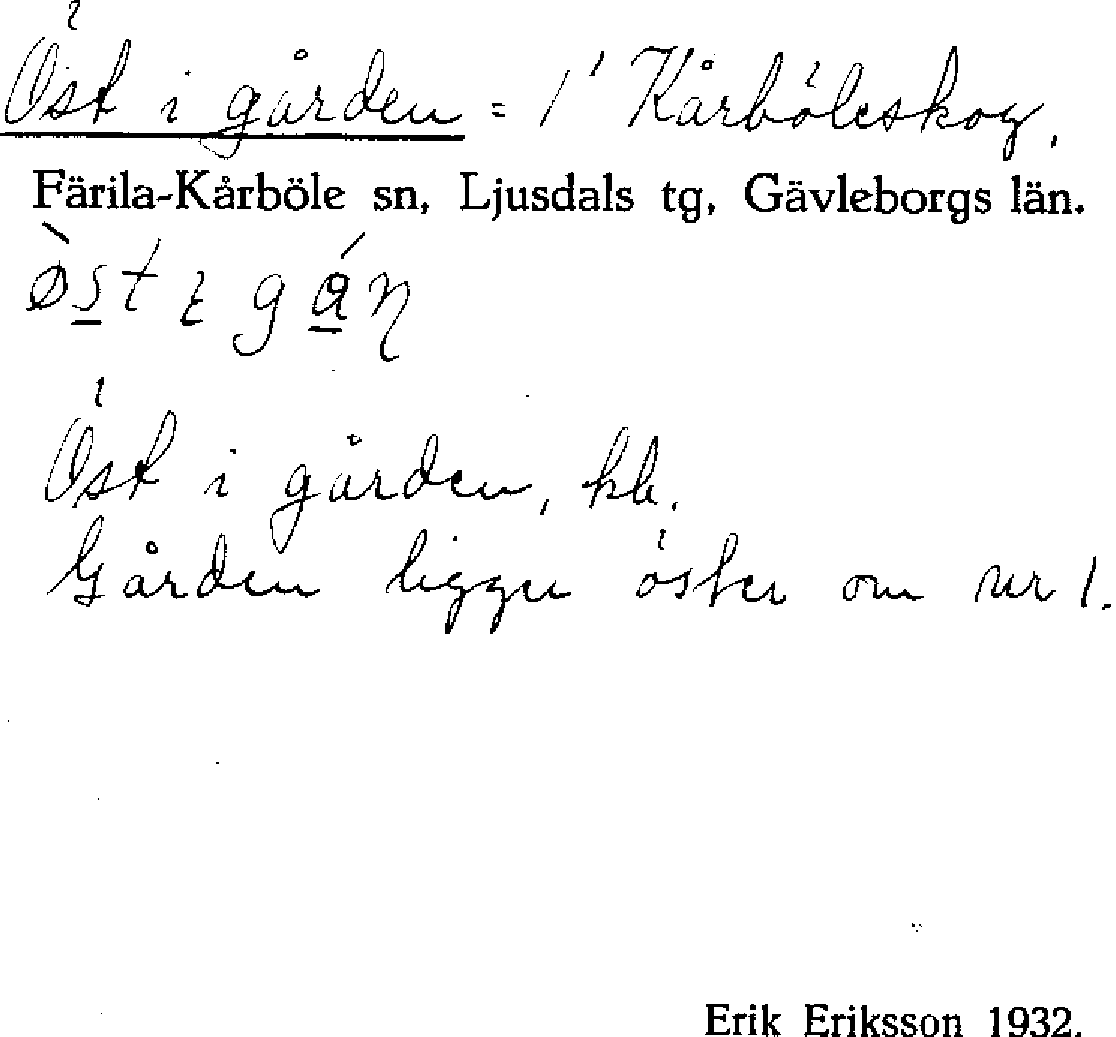 Öst i gården = 1¹ Kårböleskog.
Färila-Kårböle sn, Ljusdals tg, Gävleborgs län.
Öst i gården, kb.
Gården ligger öster om nr 1.
Erik Eriksson 1932.